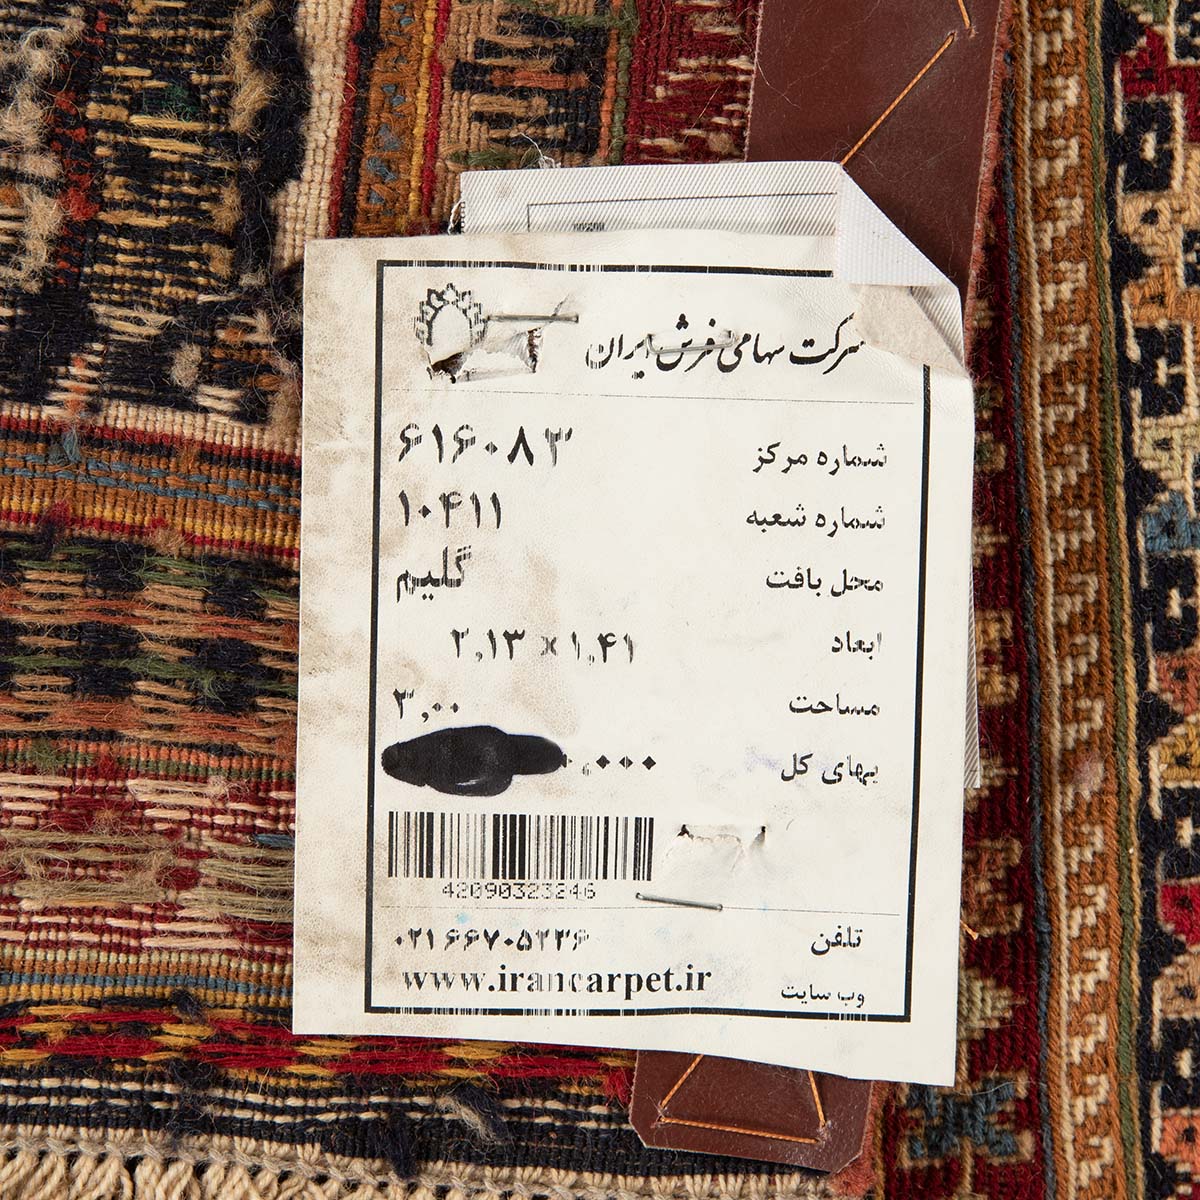 شرکت سهامی فرش ایران
شماره مرکز ۶۱۶۰۸۳
شماره شعبه ۱۰۴۱۱
محل بافت گلیم
ابعاد ۲,۱۳ x ۱,۴۱
مساحت ۳,۰۰
بهای کل ۰,۰۰۰
42090323246
تلفن ۰۲۱۶۶۷۰۵۲۳۶
وب سایت www.irancarpet.ir